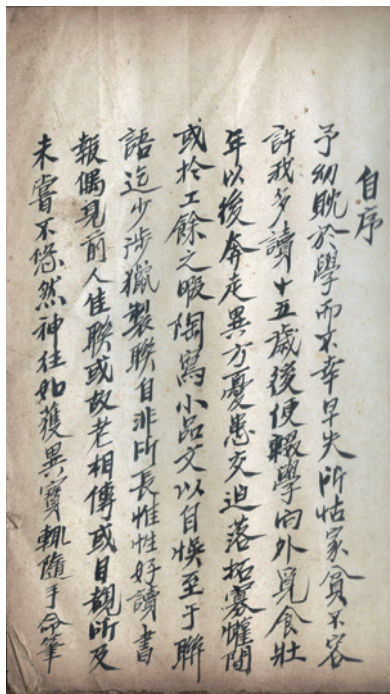 自序
予幼耽於學而不幸早失所怙家貧不容
許我多讀十五歲後便輟學向外覓食壯
年以後奔走異方憂患交迫落拓寡懽間
或於工餘之暇陶寫小品文以自娛至于聯
語迄少涉獵製聯自非所長惟性好讀書
報偶見前人佳聯或故老相傳或目覩所及
未嘗不悠然神往如獲異寶輒隨手命筆